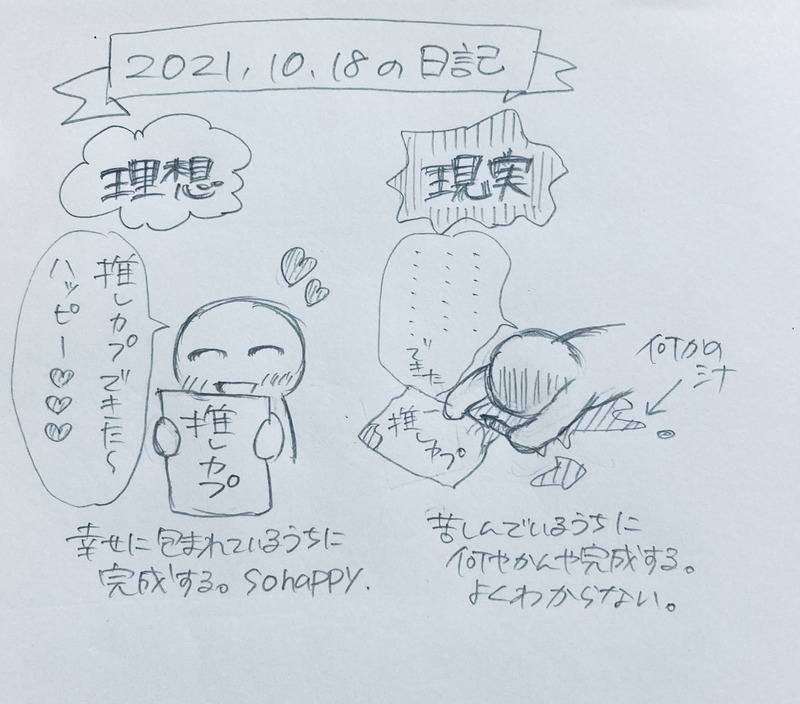 2021.10.18の日記
理想
現実
推しカプできた〜
ハッピー♡♡♡
推しカプ
幸せに包まれているうちに
完成する。so happy.
・・・・・・
・・・・・・
・・・・・・できた
推しカプ
何かの
汁
苦しんでいるうちに
何やかんや完成する。
よくわからない。